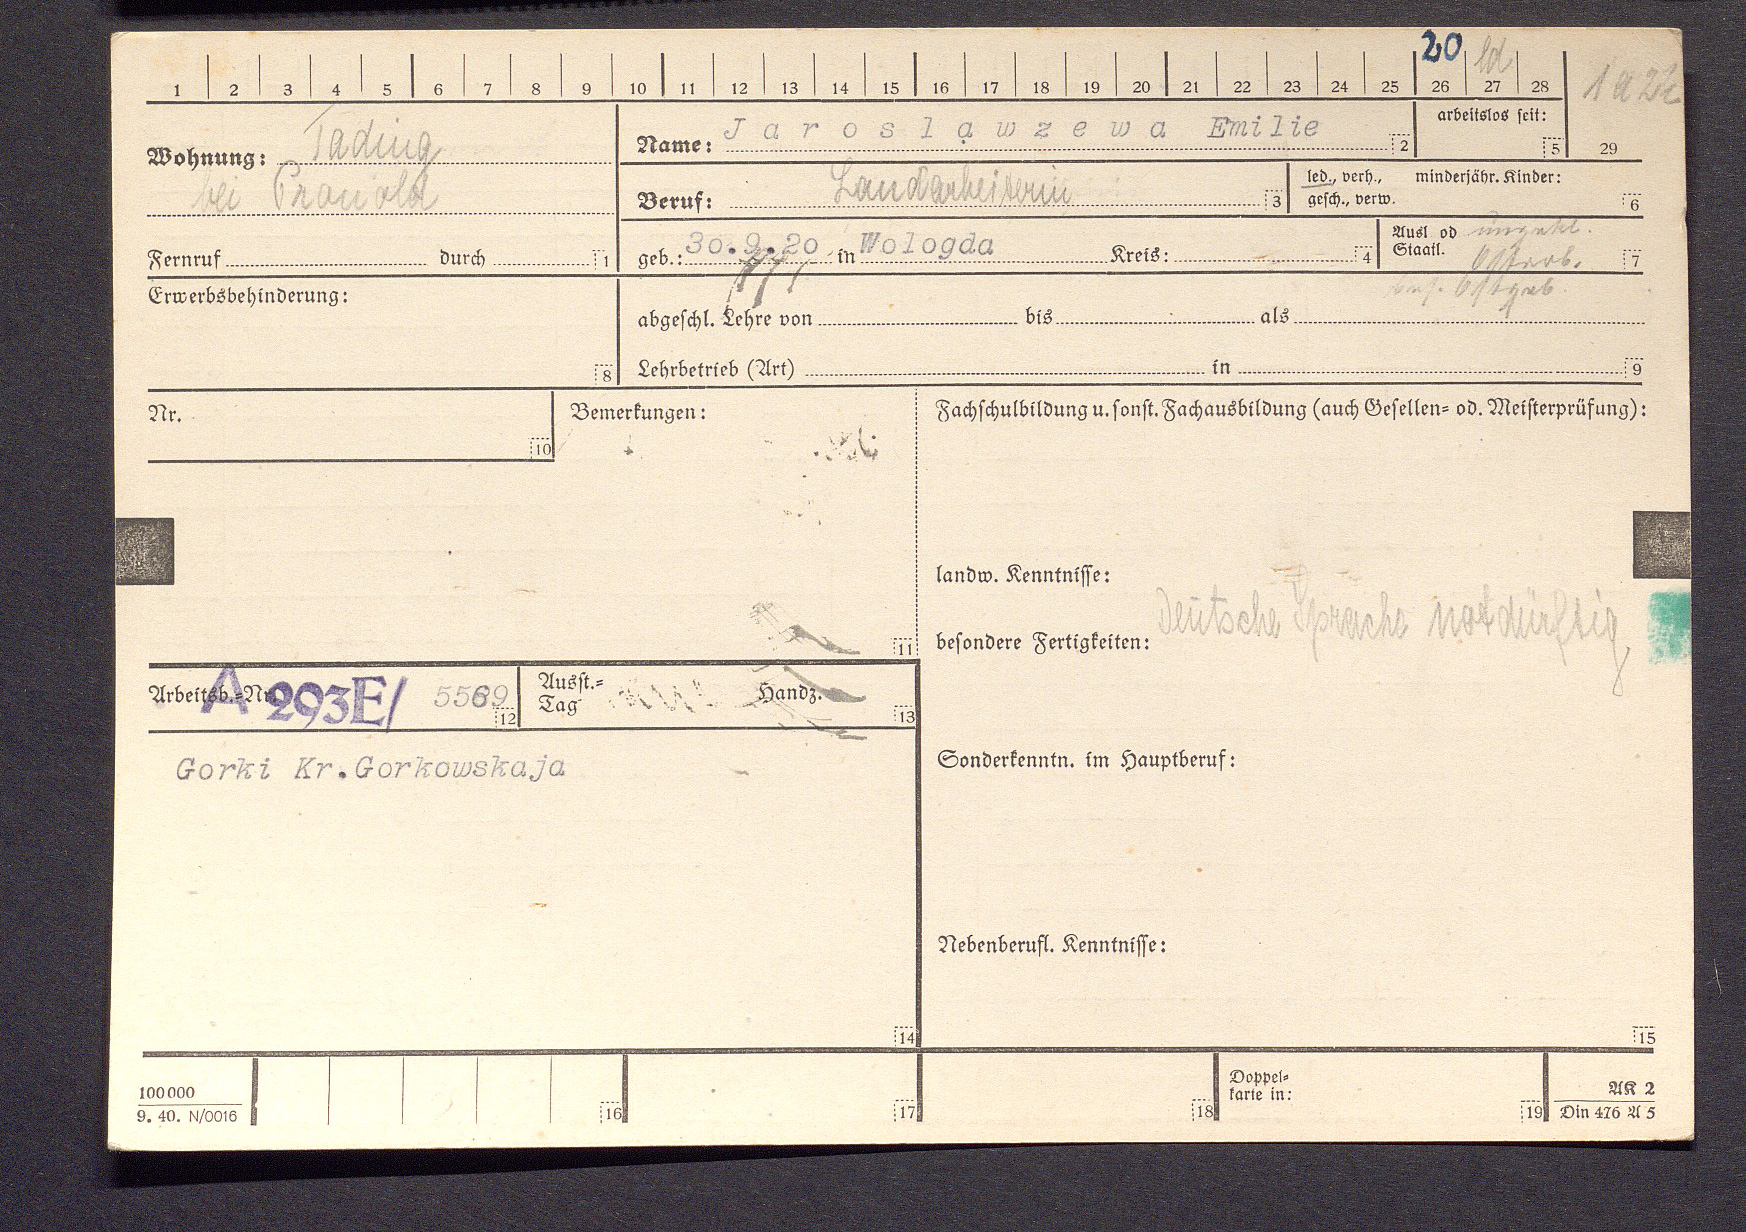 20 ld
1 2 3 4 5 6 7 8 9 10 11 12 13 14 15 16 17 18 19 20 21 22 23 24 25 26 27 28
1a
29
Wohnung: Tading
bei
Name: Jaroslawzewa Emilie 2
arbeitslos seit: 5
Beruf: Landarbeiterin 3
led., verh., minderjähr. Kinder:
gesch., verw. 6
Fernruf durch 1
geb.: 30.9.20 in Wologda Kreis: 4
Ausl od
Staatl. 7
Erwerbsbehinderung: 8
abgeschl. Lehre von bis als
Lehrbetrieb (Art) in 9
Nr. 10
Bemerkungen: 11
Fachschulbildung u. sonst. Fachausbildung (auch Gesellen= od. Meisterprüfung):
landw. Kenntnisse:
besondere Fertigkeiten: Deutsche Sprache notdürftig
Arbeitsb.=Nr. A 293E/ 5569 12
Ausst.=
Tag Handz. 13
Gorki Kr.Gorkowskaja
14
Sonderkenntn. im Hauptberuf:
Nebenberufl. Kenntnisse:
15
100000
9. 40. N/0016
16 17 18
Doppel=
karte in: 19
AK 2
Din 476 A 5